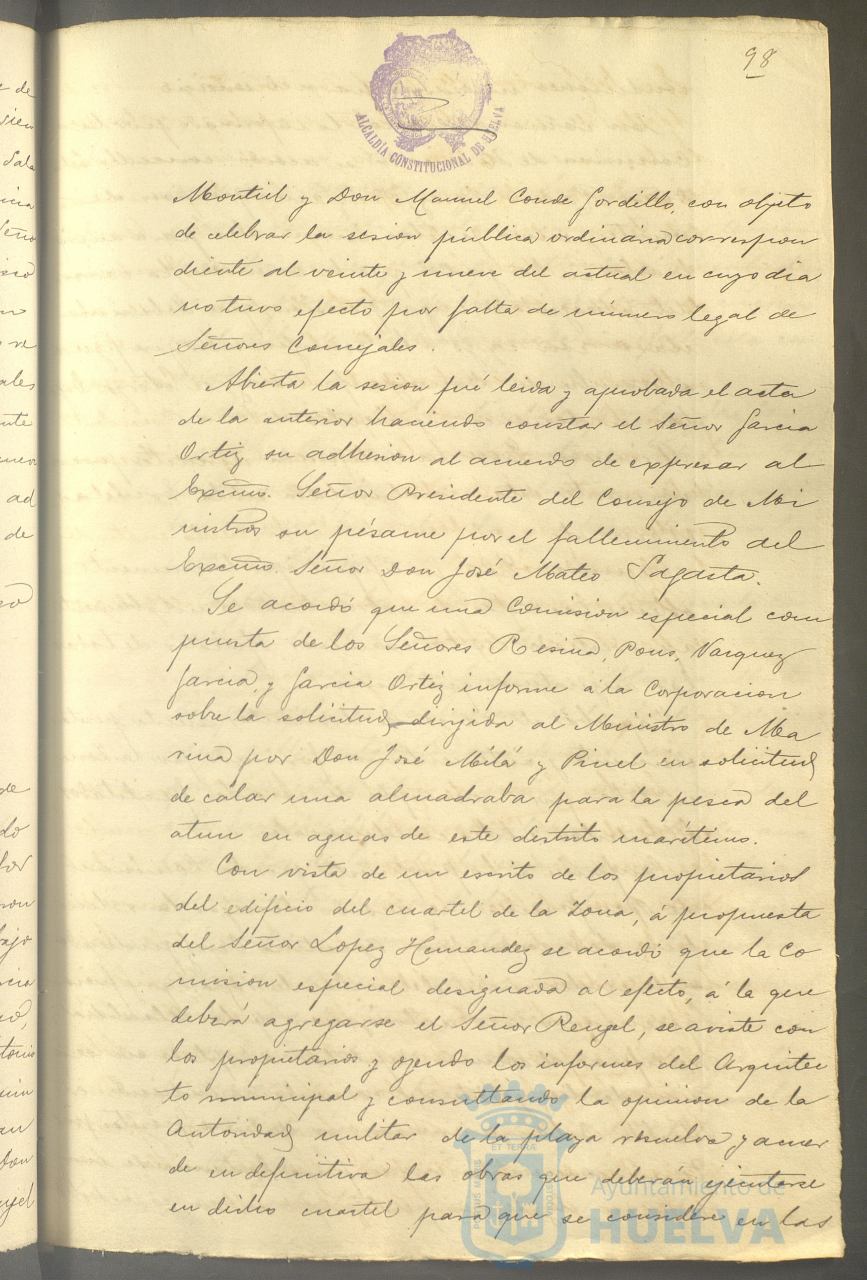 98
ALCALDÍA CONSTITUCIONAL DE HUELVA
Montiel y Don Manuel Conde Gordillo, con objeto
de celebrar la sesion pública ordinaria correspon
diente al veinte y nueve del actual en cuyo dia
no tuvo efecto por falta de número legal de
Señores Concejales.
Abierta la sesion fué leida y aprobada el acta
de la anterior haciendo constar el Señor Garcia
Ortiz su adhesion al acuerdo de expresar al
Excmo. Señor Presidente del Consejo de Mi
nistros su pésame por el fallecimiento del
Excmo. Señor Don José Mateo Sagasta.
Se acordó que una Comision especial com
puesta de los Señores Resina, Pons, Vazquez
Garcia, y Garcia Ortiz informe á la Corporacion
sobre la solicitud dirijida al Ministro de Ma
rina por Don José Milá y Pinel en solicitud
de calar una almadraba para la pesca del
atun en aguas de este distrito marítimo.
Con vista de un escrito de los propietarios
del edificio del cuartel de la Zona, á propuesta
del Señor Lopez Hernandez se acordó que la Co
mision especial designada al efecto, á la que
deberá agregarse el Señor Rengel, se aviste con
los propietarios y oyendo los informes del Arquitec
to municipal y consultando la opinion de la
Autoridad militar de la plaza resuelva y acuer
de en definitiva las obras que deberán ejecutarse
en dicho cuartel para que se considere en las
Ayuntamiento de
HUELVA